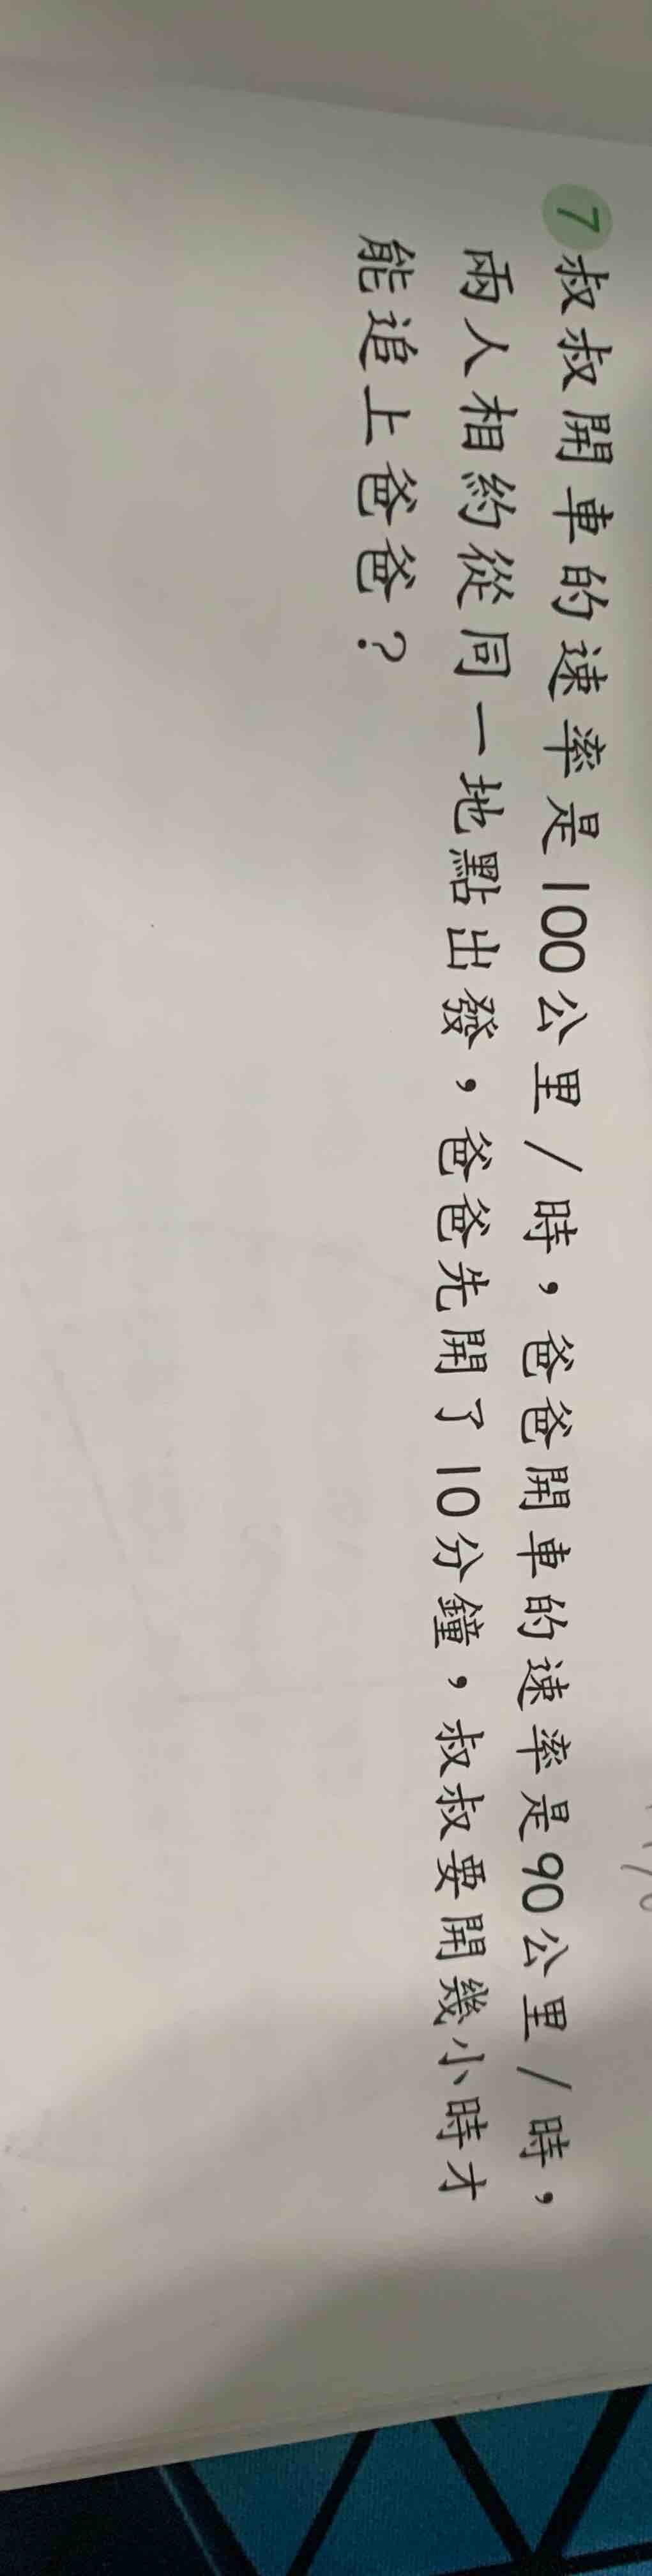 7 叔叔開車的速率是100公里/時，爸爸開車的速率是90公里/時，
兩人相約從同一地點出發，爸爸先開了10分鐘，叔叔要開幾小時才
能追上爸爸？